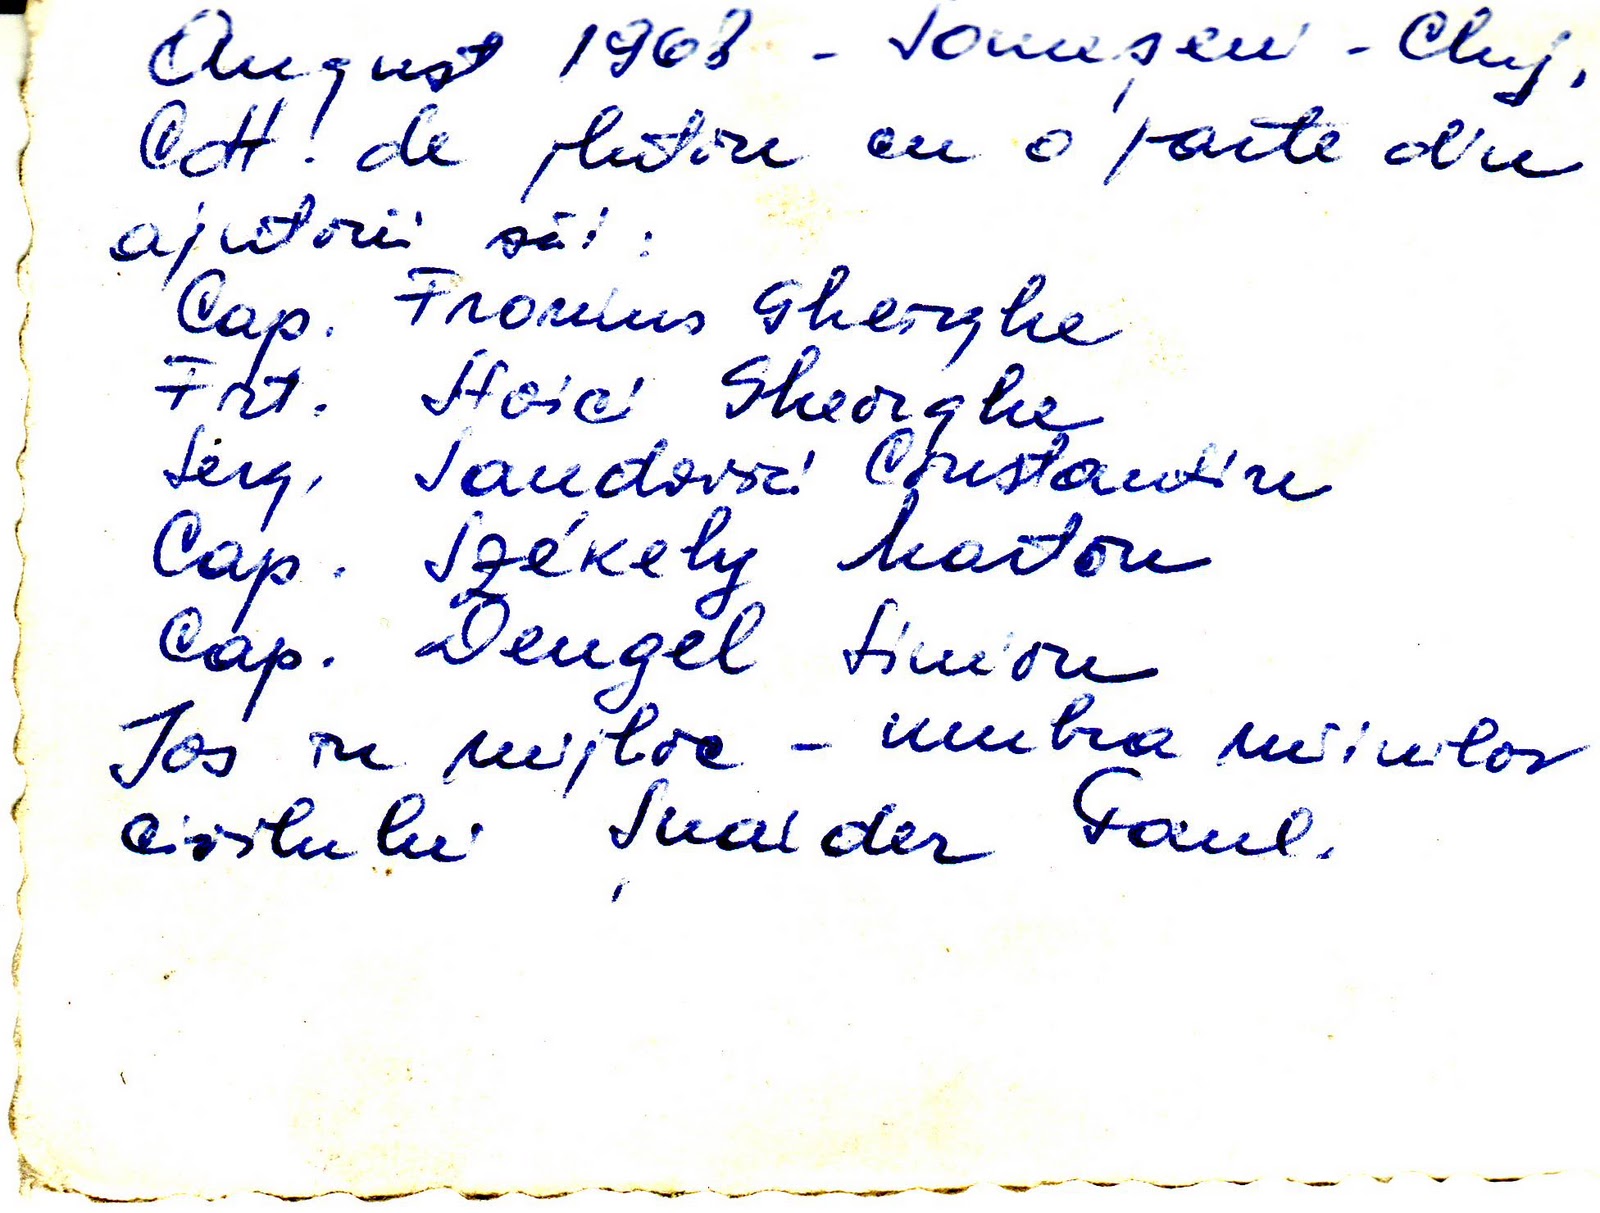 August 1968 - Someșeni - Cluj.
Cdt. de pluton cu o parte din
ajutorii săi:
Cap. Fronius Gheorghe
Frt. Stoici Gheorghe
Serg. Sandovici Constantin
Cap. Székely Marton
Cap. Dengel Simion
Jos în mijloc - umbra mîinilor
civilului Șnaider Paul.